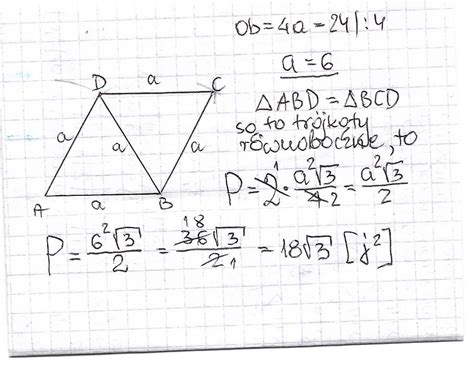 Ob = 4a = 24 |:4
a = 6
D a C
a a a
A a B
△ABD = △BCD
są to trójkąty
równoboczne, to
P = 2̸¹ · a²√3/4̸₂ = a²√3/2
P = 6²√3/2 = 3̸6̸¹⁸√3/2̸₁ = 18√3 [j²]